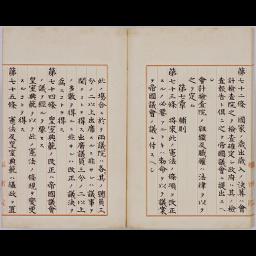 第七十二條 國家ノ歳出歳入ノ決算ハ會
計檢査院之ヲ檢査確定シ政府ハ其ノ檢
査報告ト俱ニ之ヲ帝國議會ニ提出スヘ
シ
會計檢査院ノ組織及職權ハ法律ヲ以テ
之ヲ定ム
第七章 補則
第七十三條 將來此ノ憲法ノ條項ヲ改正
スルノ必要アルトキハ勅命ヲ以テ議案
ヲ帝國議會ノ議ニ付スヘシ
此ノ場合ニ於テ兩議院ハ各々其ノ總員三
分ノ二以上出席スルニ非サレハ議事ヲ
開クコトヲ得ス出席議員三分ノ二以上
ノ多數ヲ得ルニ非サレハ改正ノ議決ヲ
爲スコトヲ得ス
第七十四條 皇室典範ノ改正ハ帝國議會
ノ議ヲ經ルヲ要セス
皇室典範ヲ以テ此ノ憲法ノ條規ヲ變更
スルコトヲ得ス
第七十五條 憲法及皇室典範ハ攝政ヲ置